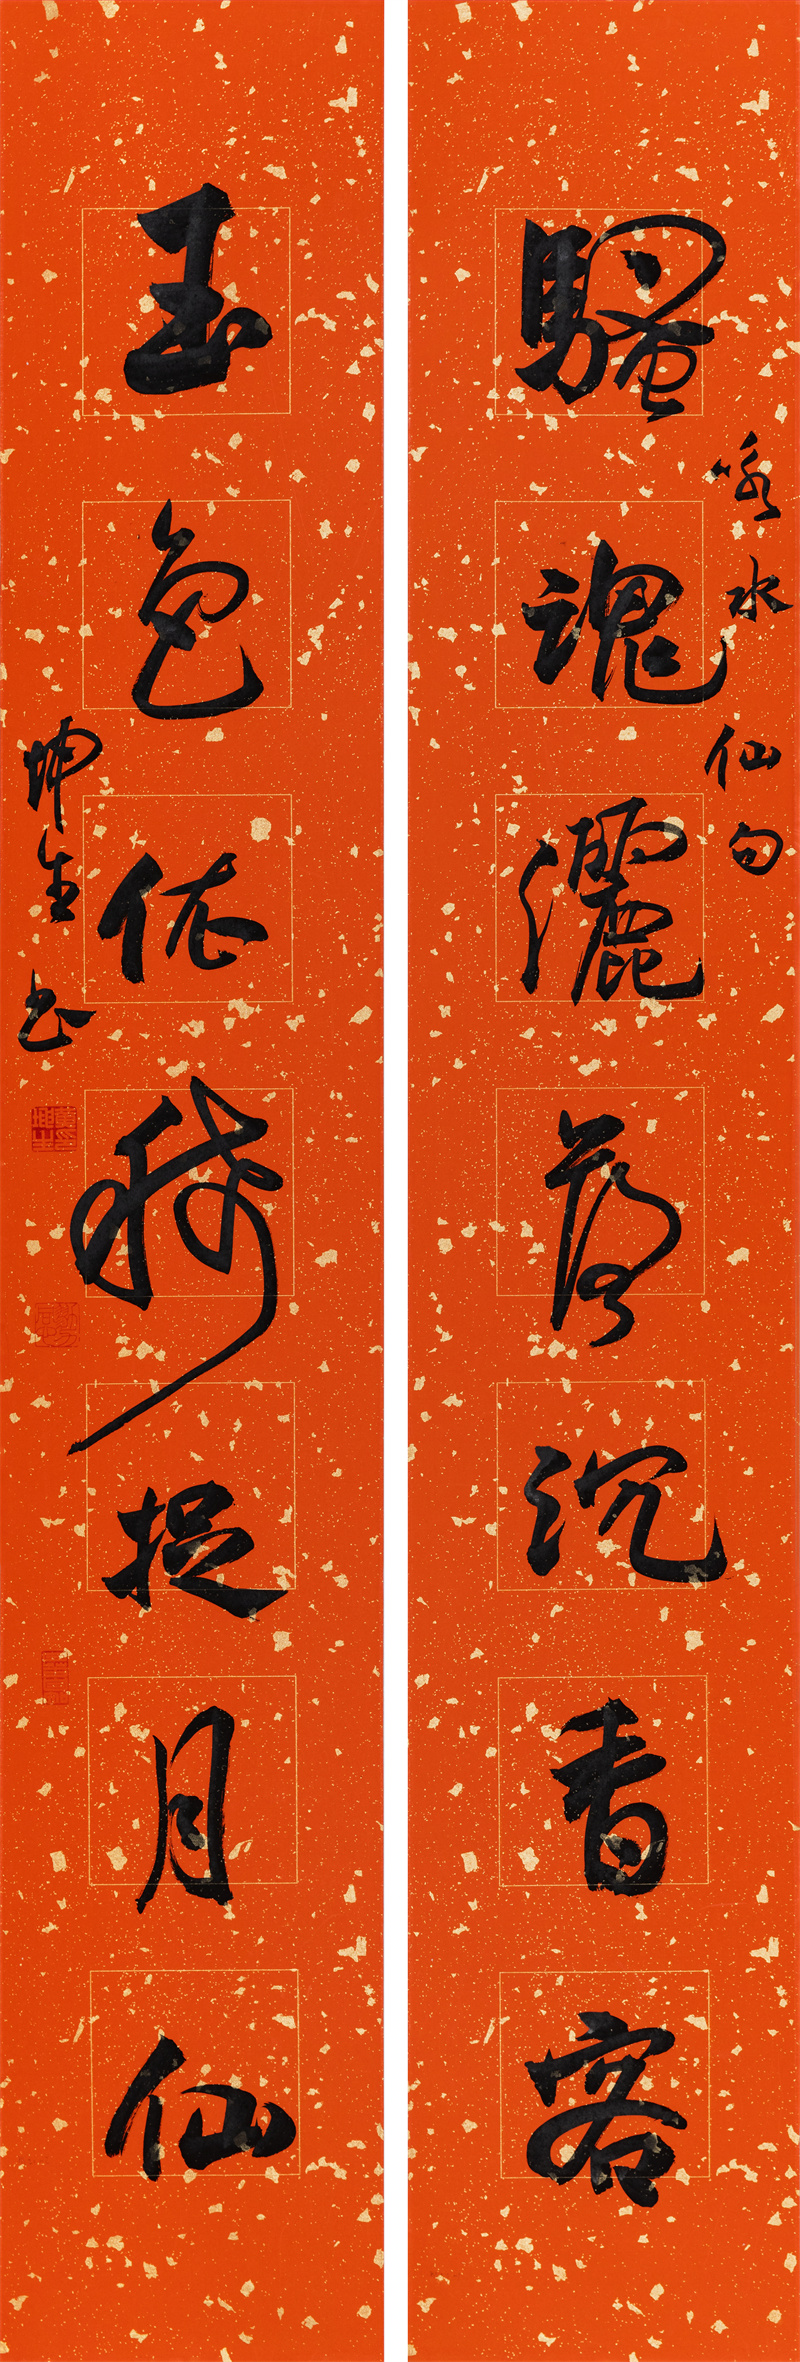 騷魂灑落沉香客
咏水仙句
玉色依稀捉月仙
坤生书